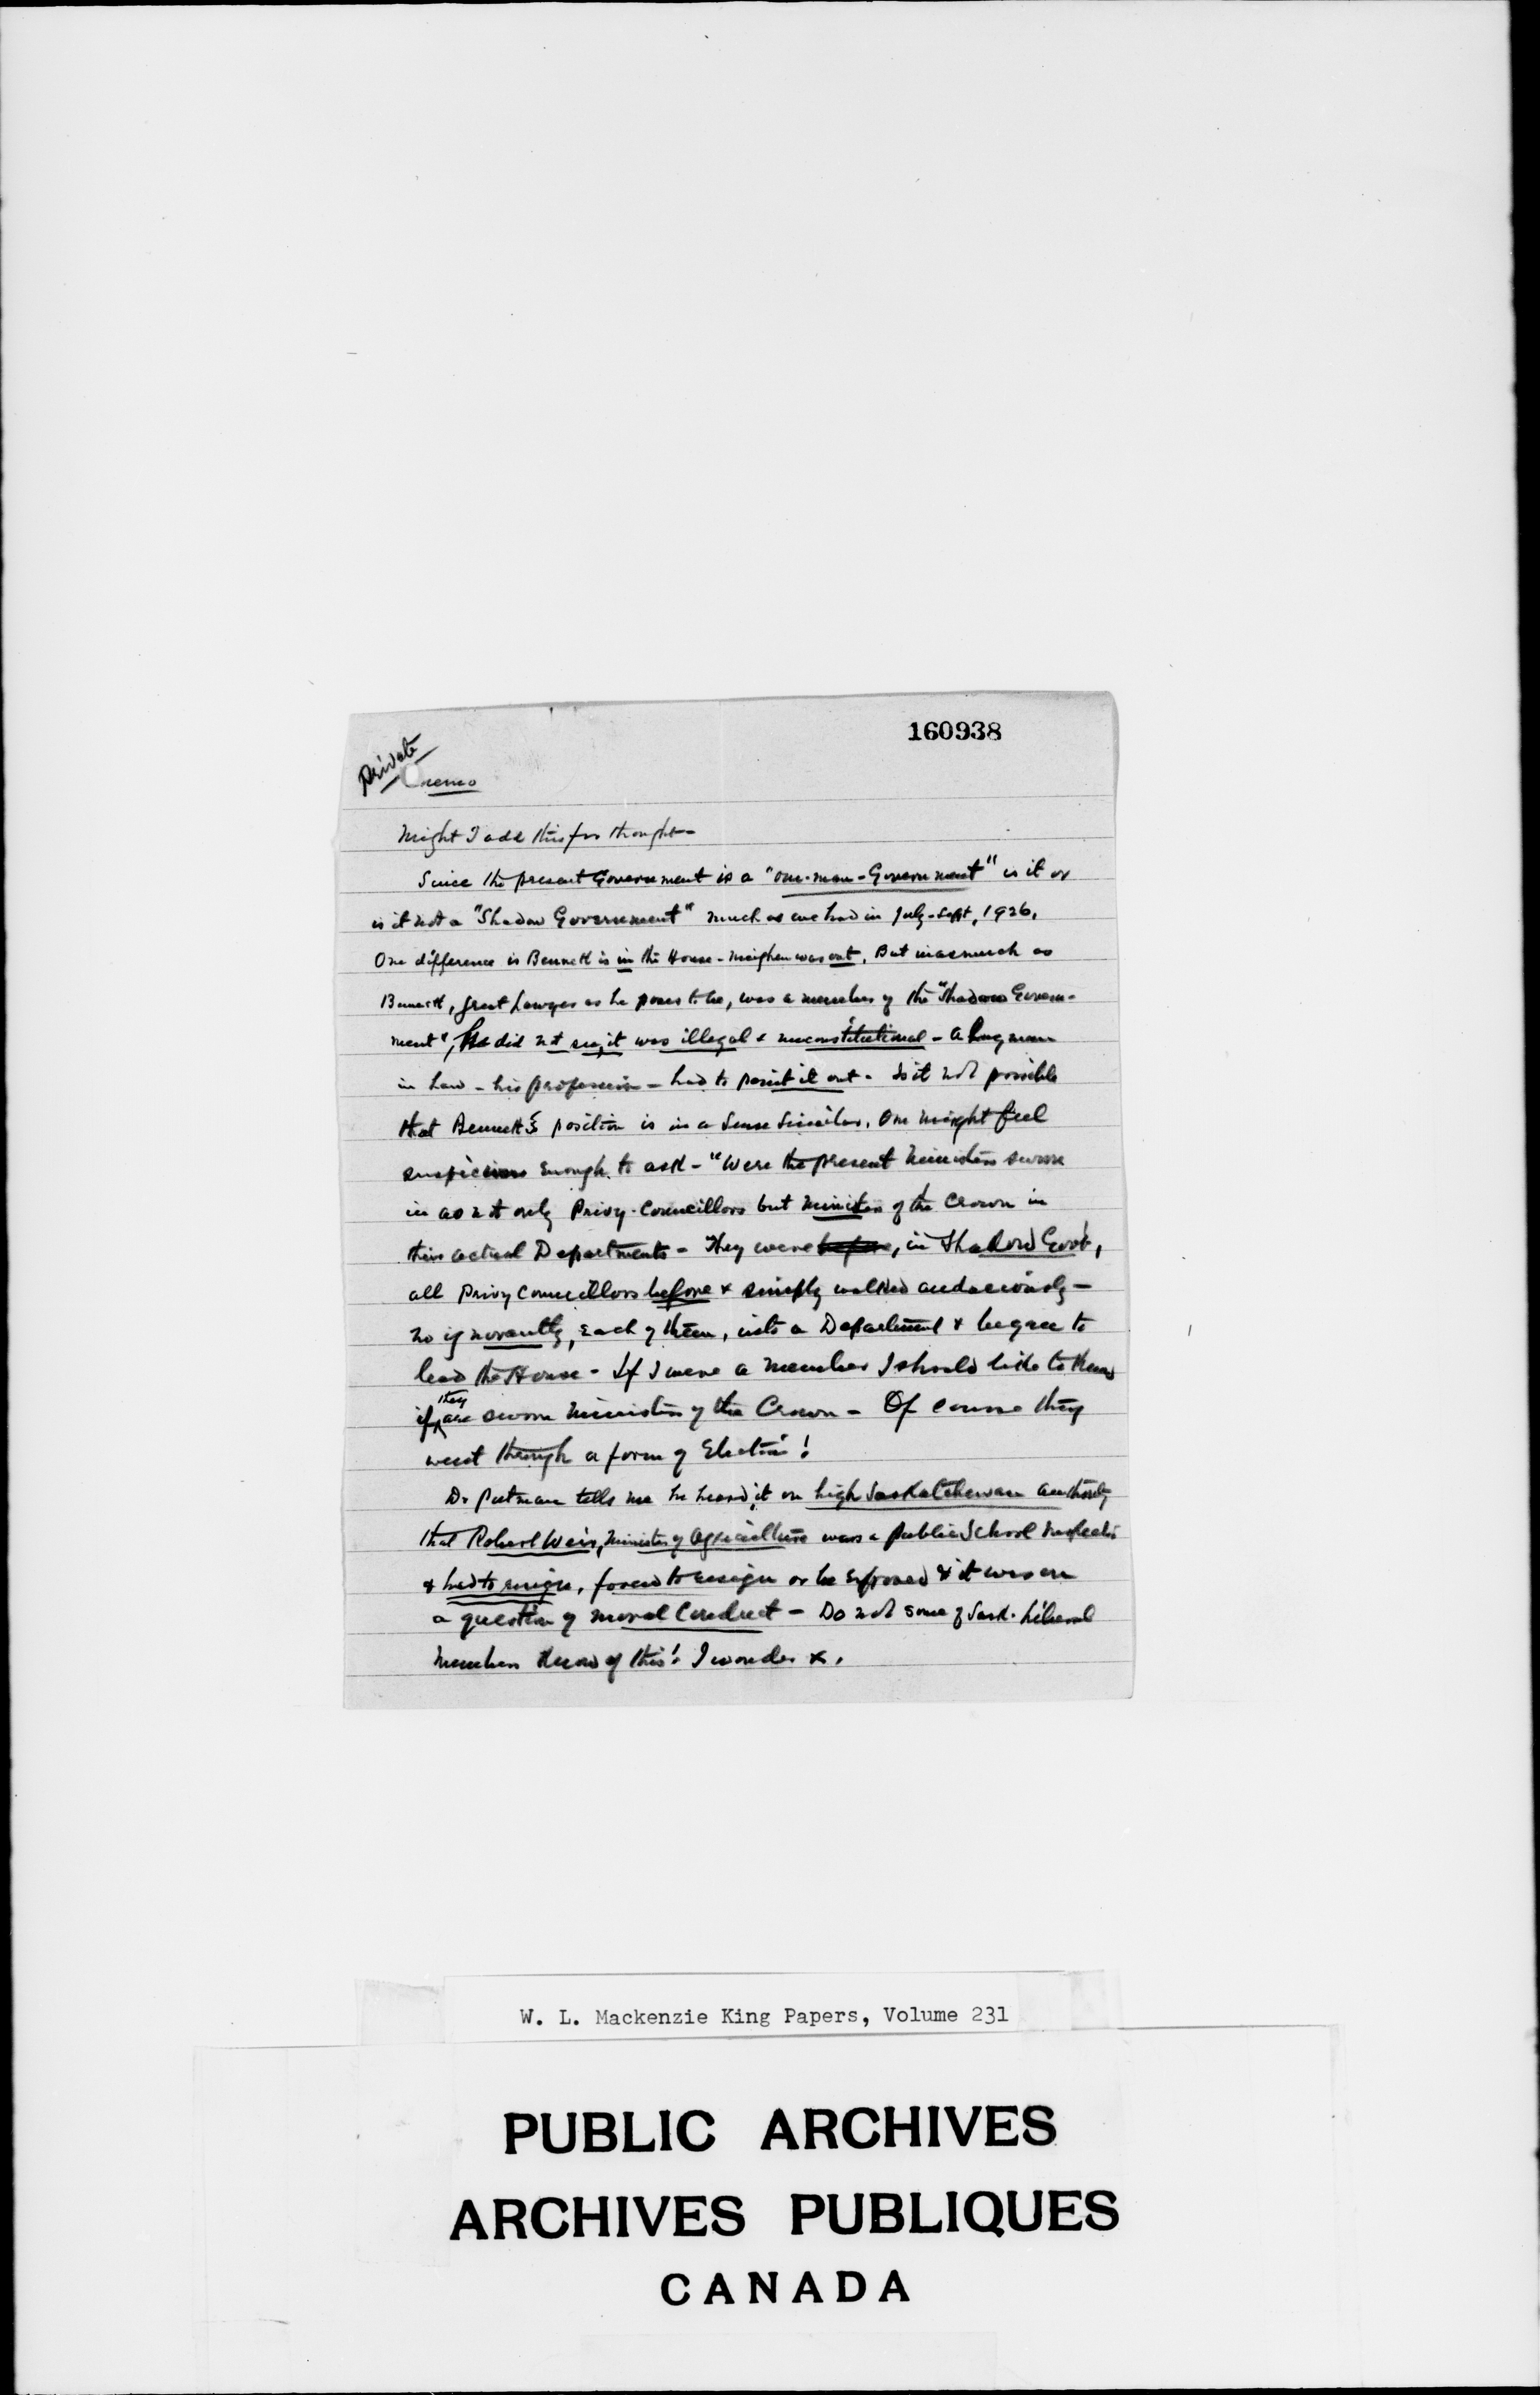 160938
Private
memo
Might I add this for thought -
Since the present Government is a "one-man-Government" is it or
is it not a "Shadow Government" much as we had in July-Sept, 1926.
One difference is Bennett is in the House - Meighen was out. But inasmuch as
Bennett, great Lawyer as he poses to be, was a member of the "Shadow Govern-
ment", he did not see, it was illegal & unconstitutional - A
in Law - his profession - had to point it out. Is it not possible
that Bennett's position is in a sense similar. One might feel
suspicious enough to ask - "Were the present Ministers sworn
in as not only Privy-Councillors but Ministers of the Crown in
their actual Departments - They were before, in Shadow Govt,
all Privy Councillors before & simply walked audaciously -
no ignorantly, each of them, into a Department & began to
lead the House - If I were a member I should like to know
if they are sworn Ministers of the Crown - Of course they
went through a form of Election!
Dr Putman tells me he heard it on high Saskatchewan authority
that Robert Weir, Minister of Agriculture was a Public School Inspector
& had to resign, forced to resign or be exposed & it was on
a question of moral Conduct - Do not some of Sask. Liberal
Members know of this! I wonder x.
W. L. Mackenzie King Papers, Volume 231
PUBLIC ARCHIVES
ARCHIVES PUBLIQUES
CANADA